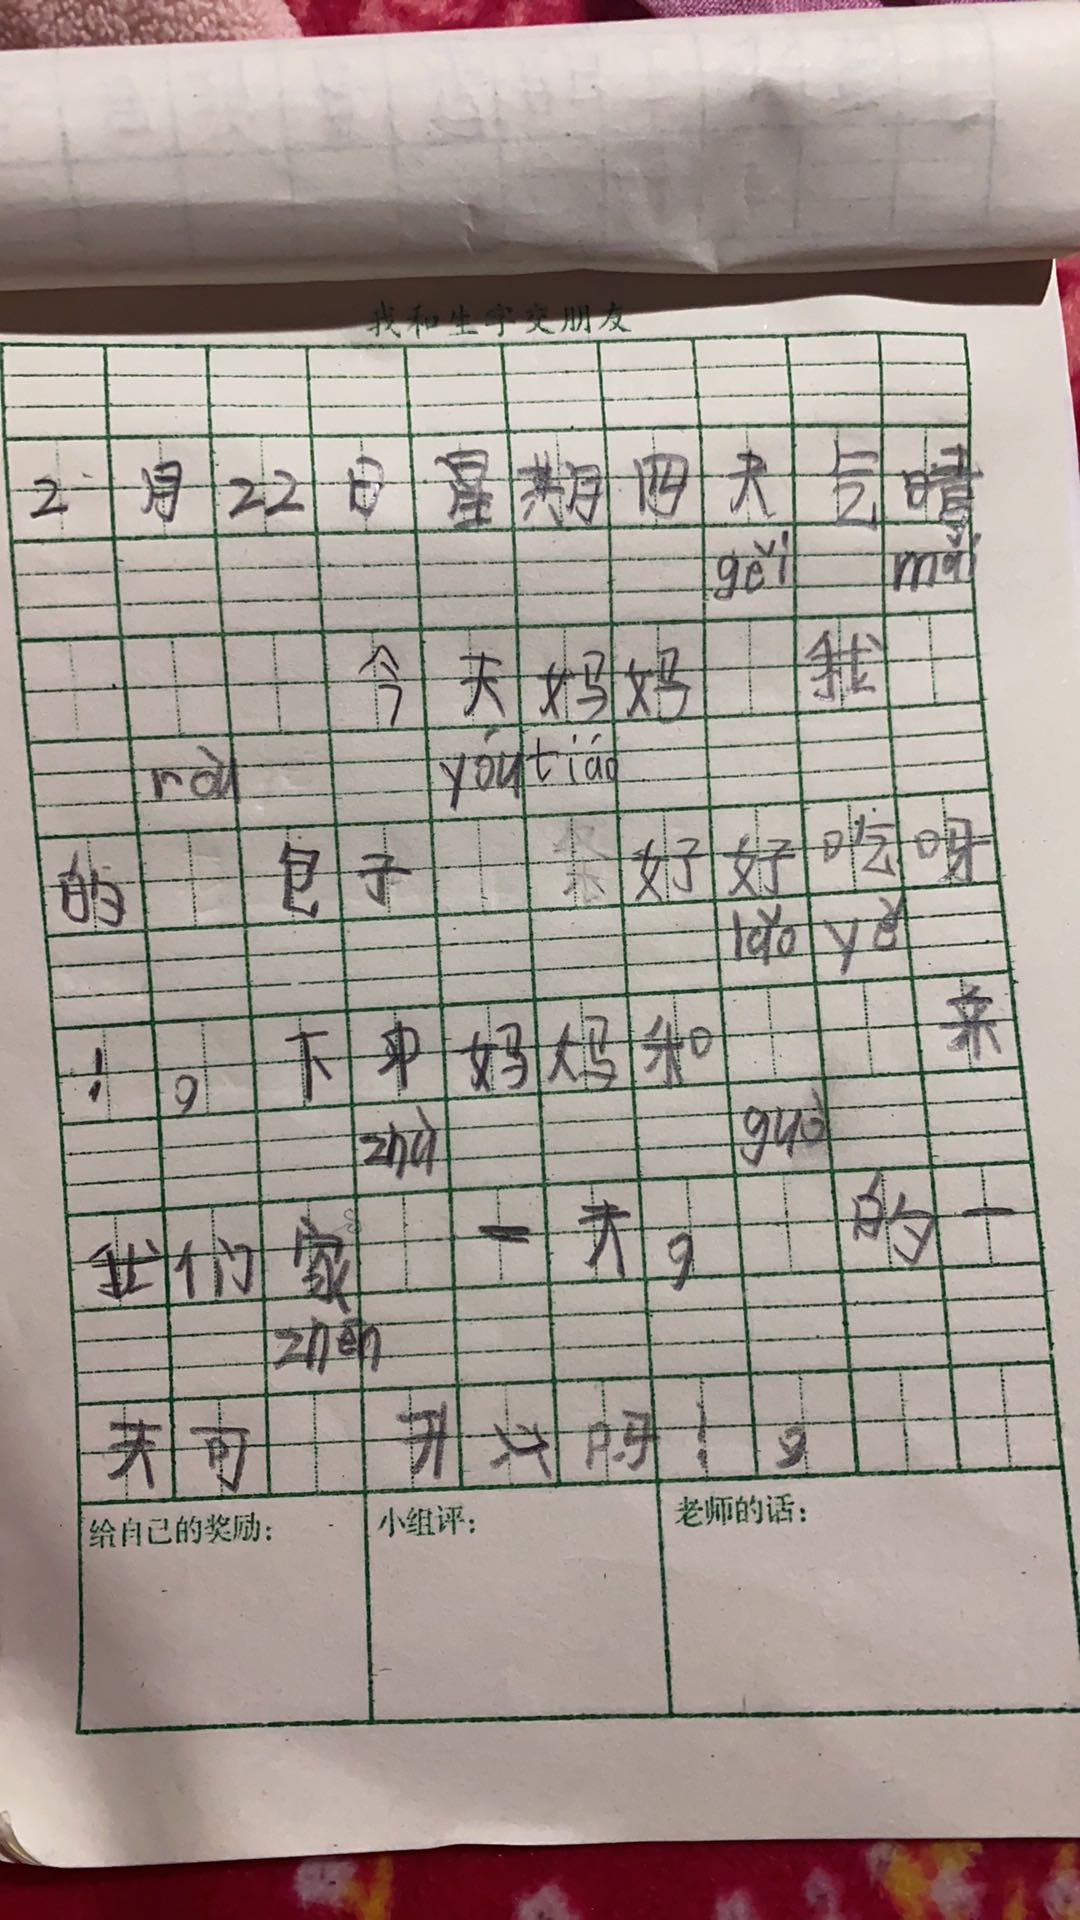 我和生字交朋友
2月22日星期四天气晴
gěi mǎi
今天妈妈我
ròu yóu tiáo
的包子条好好吃呀
lǎo yé
！。下午妈妈和来
zhù guò
我们家一天，的一
zhēn
天可开心啊！。
给自己的奖励： 小组评： 老师的话：